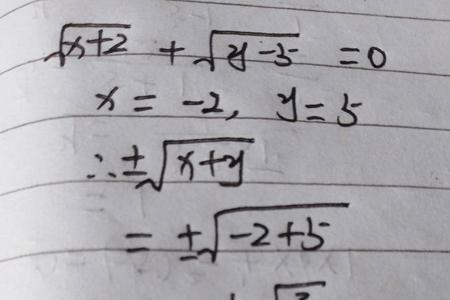 √(x+2) + √(y-5) = 0
x = -2, y = 5
∴ ±√(x+y)
= ±√(-2+5)